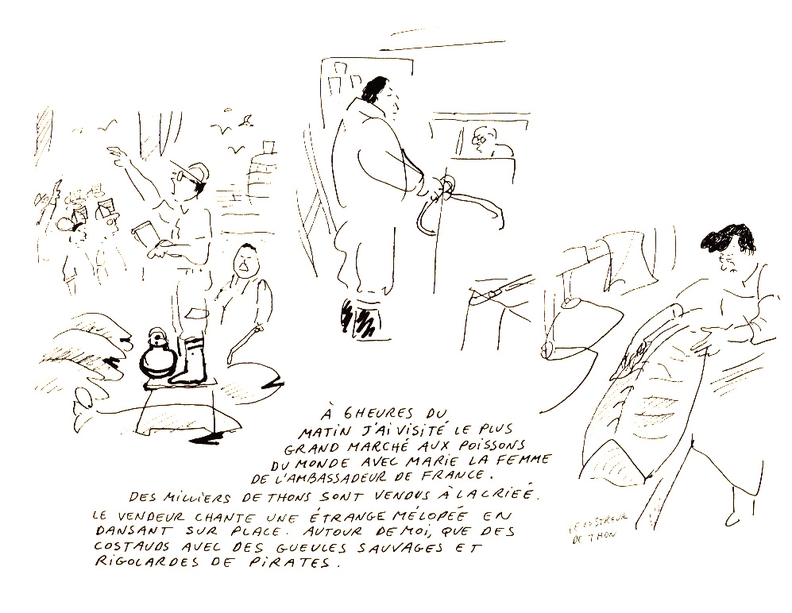 À 6 HEURES DU
MATIN J'AI VISITÉ LE PLUS
GRAND MARCHÉ AUX POISSONS
DU MONDE AVEC MARIE LA FEMME
DE L'AMBASSADEUR DE FRANCE.
DES MILLIERS DE THONS SONT VENDUS À LA CRIEÉ.
LE VENDEUR CHANTE UNE ÉTRANGE MÉLOPÉE EN
DANSANT SUR PLACE. AUTOUR DE MOI, QUE DES
COSTAUDS AVEC DES GUEULES SAUVAGES ET
RIGOLARDES DE PIRATES.
LE
DE THON